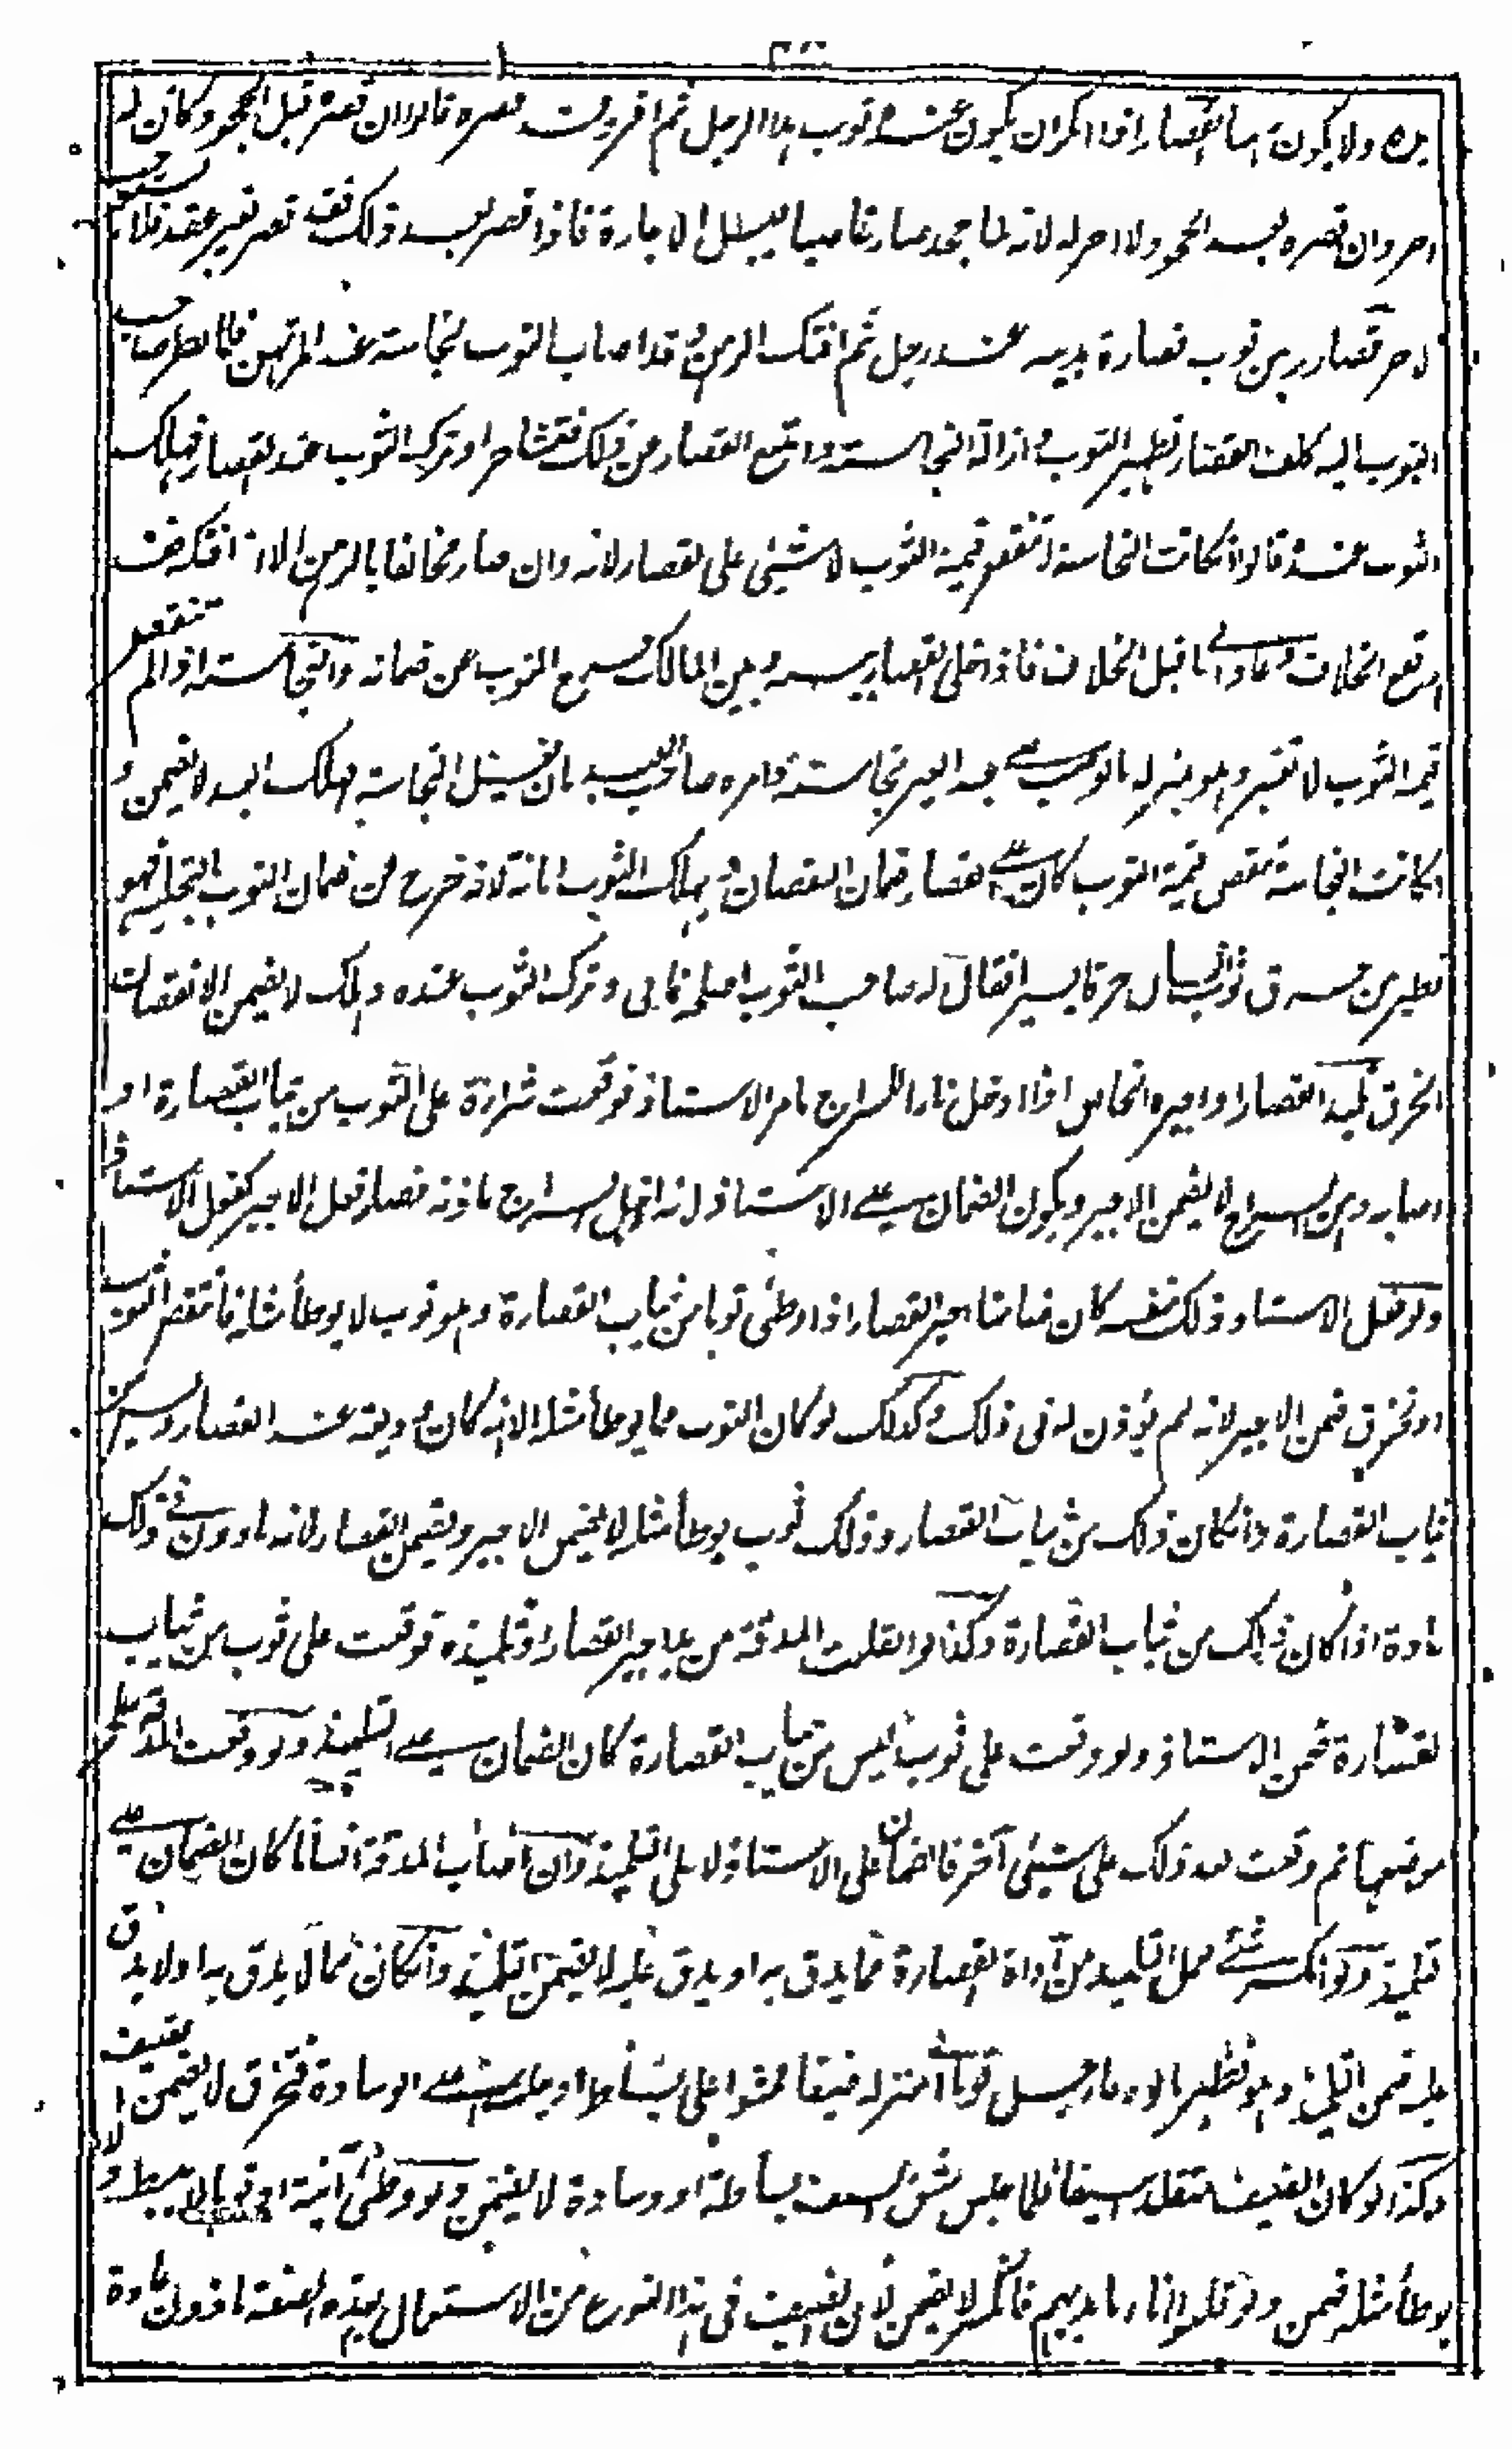 يده ولا يكون لها القصار اذا انكر ان يكون عنده ثوب هذا الرجل ثم اقر وقد قصره قالوا ان قصره قبل الجحود كان له
اجر وان قصره بعد الجحود لا اجر له لانه لما جحد صار غاصبا يبطل الاجارة فاذا قصر بعد ذلك فقد قصر بغير عقد فلا يستوجب
الاجر قصار رهن ثوب قصارة بدينه عند رجل ثم افتك الرهن وقد اصاب الثوب نجاسة عند المرتهن فلما نظر صاحب
الثوب اليه كلف القصار تطهير الثوب وازالة النجاسة وامتنع القصار من ذلك فتشاجرا وترك الثوب عند القصار فهلك
الثوب عنده قالوا ان كانت النجاسة لم تنقص قيمة الثوب لا شيئ على القصار لانه وان صار مخالفا بالرهن الا انه افتكه فقد
ارتفع الخلاف وعاد الى ما قبل الخلاف فاذا خلى القصار بينه وبين المالك خرج الثوب عن ضمانه والنجاسة اذا لم تنقص
قيمة الثوب لا تعتبر وهو بمنزلة ما لو على عبد الغير نجاسة وامره صاحب العبد بان يغسل النجاسة فهلك العبد لا يضمن و
ان كانت النجاسة تنقص قيمة الثوب كان على القصار ضمان النقصان ويهلك الثوب امانة لانه خرج من ضمان الثوب بالتخلية فهو
نظير من خرق ثوب انسان خرقا يسيرا فقال له صاحب الثوب اصلحه فابى وترك الثوب عنده وهلك لا يضمن الا نقصان
الخرق تلميذ القصار او اجيره الخاص اذا ادخل نارا للسراج بامر الاستاذ فوقعت شرارة على الثوب من ثياب القصارة او
اصابه دهن السراج لا يضمن الاجير ويكون الضمان على الاستاذ لانه ادخل السراج باذنه فصار فعل الاجير كفعل الاستاذ
ولو فعل الاستاذ ذلك بنفسه كان ضامنا اجير القصار اذا وطئ ثوبا من ثياب القصارة وهو ثوب لا يوطأ مثله فانتقص الثوب
او تخرق ضمن الاجير لانه لم يؤذن له في ذلك وكذلك لو كان الثوب مما يوطأ مثله الا انه كان وديعة عند القصار وليس من
ثياب القصارة وان كان ذلك من ثياب القصار وذلك ثوب يوطأ مثله لا يضمن الاجير ويضمن القصار لانه ماذون في ذلك
عادة اذا كان ذلك من ثياب القصارة وكذا لو انفلتت المدقة من يد اجير القصار او تلميذه فوقعت على ثوب من ثياب
القصارة ضمن الاستاذ ولو وقعت على ثوب ليس من ثياب القصارة كان الضمان على التلميذ ولو وقعت المدقة على
موضعها ثم وقعت بعد ذلك على شيئ آخر فالضمان على الاستاذ لا على التلميذ وان اصاب المدقة انسانا كان الضمان على
التلميذ ولو انكسر شئ عمل التلميذ من اداة القصارة مما يدق به او يدق عليه لا يضمن التلميذ وان كان مما لا يدق به او لا يدق
عليه ضمن التلميذ وهو نظير ما لو دعا رجل قوما الى منزله ضيفا فمشوا على بساطه او جلسوا على الوسادة فتخرق لا يضمن الضيف
وكذا لو كان الضيف متقلد سيفا فلما جلس شق السيف بساطه او وسادة لا يضمن ولو وطئ آنية او ثوبا لا يبسط ولا
يوطأ مثله ضمن ولو قلبوا اناء بايديهم فانكسر لا يضمن لان الضيف في هذا النوع من الاستعمال بهذه الصفة ماذون عادة